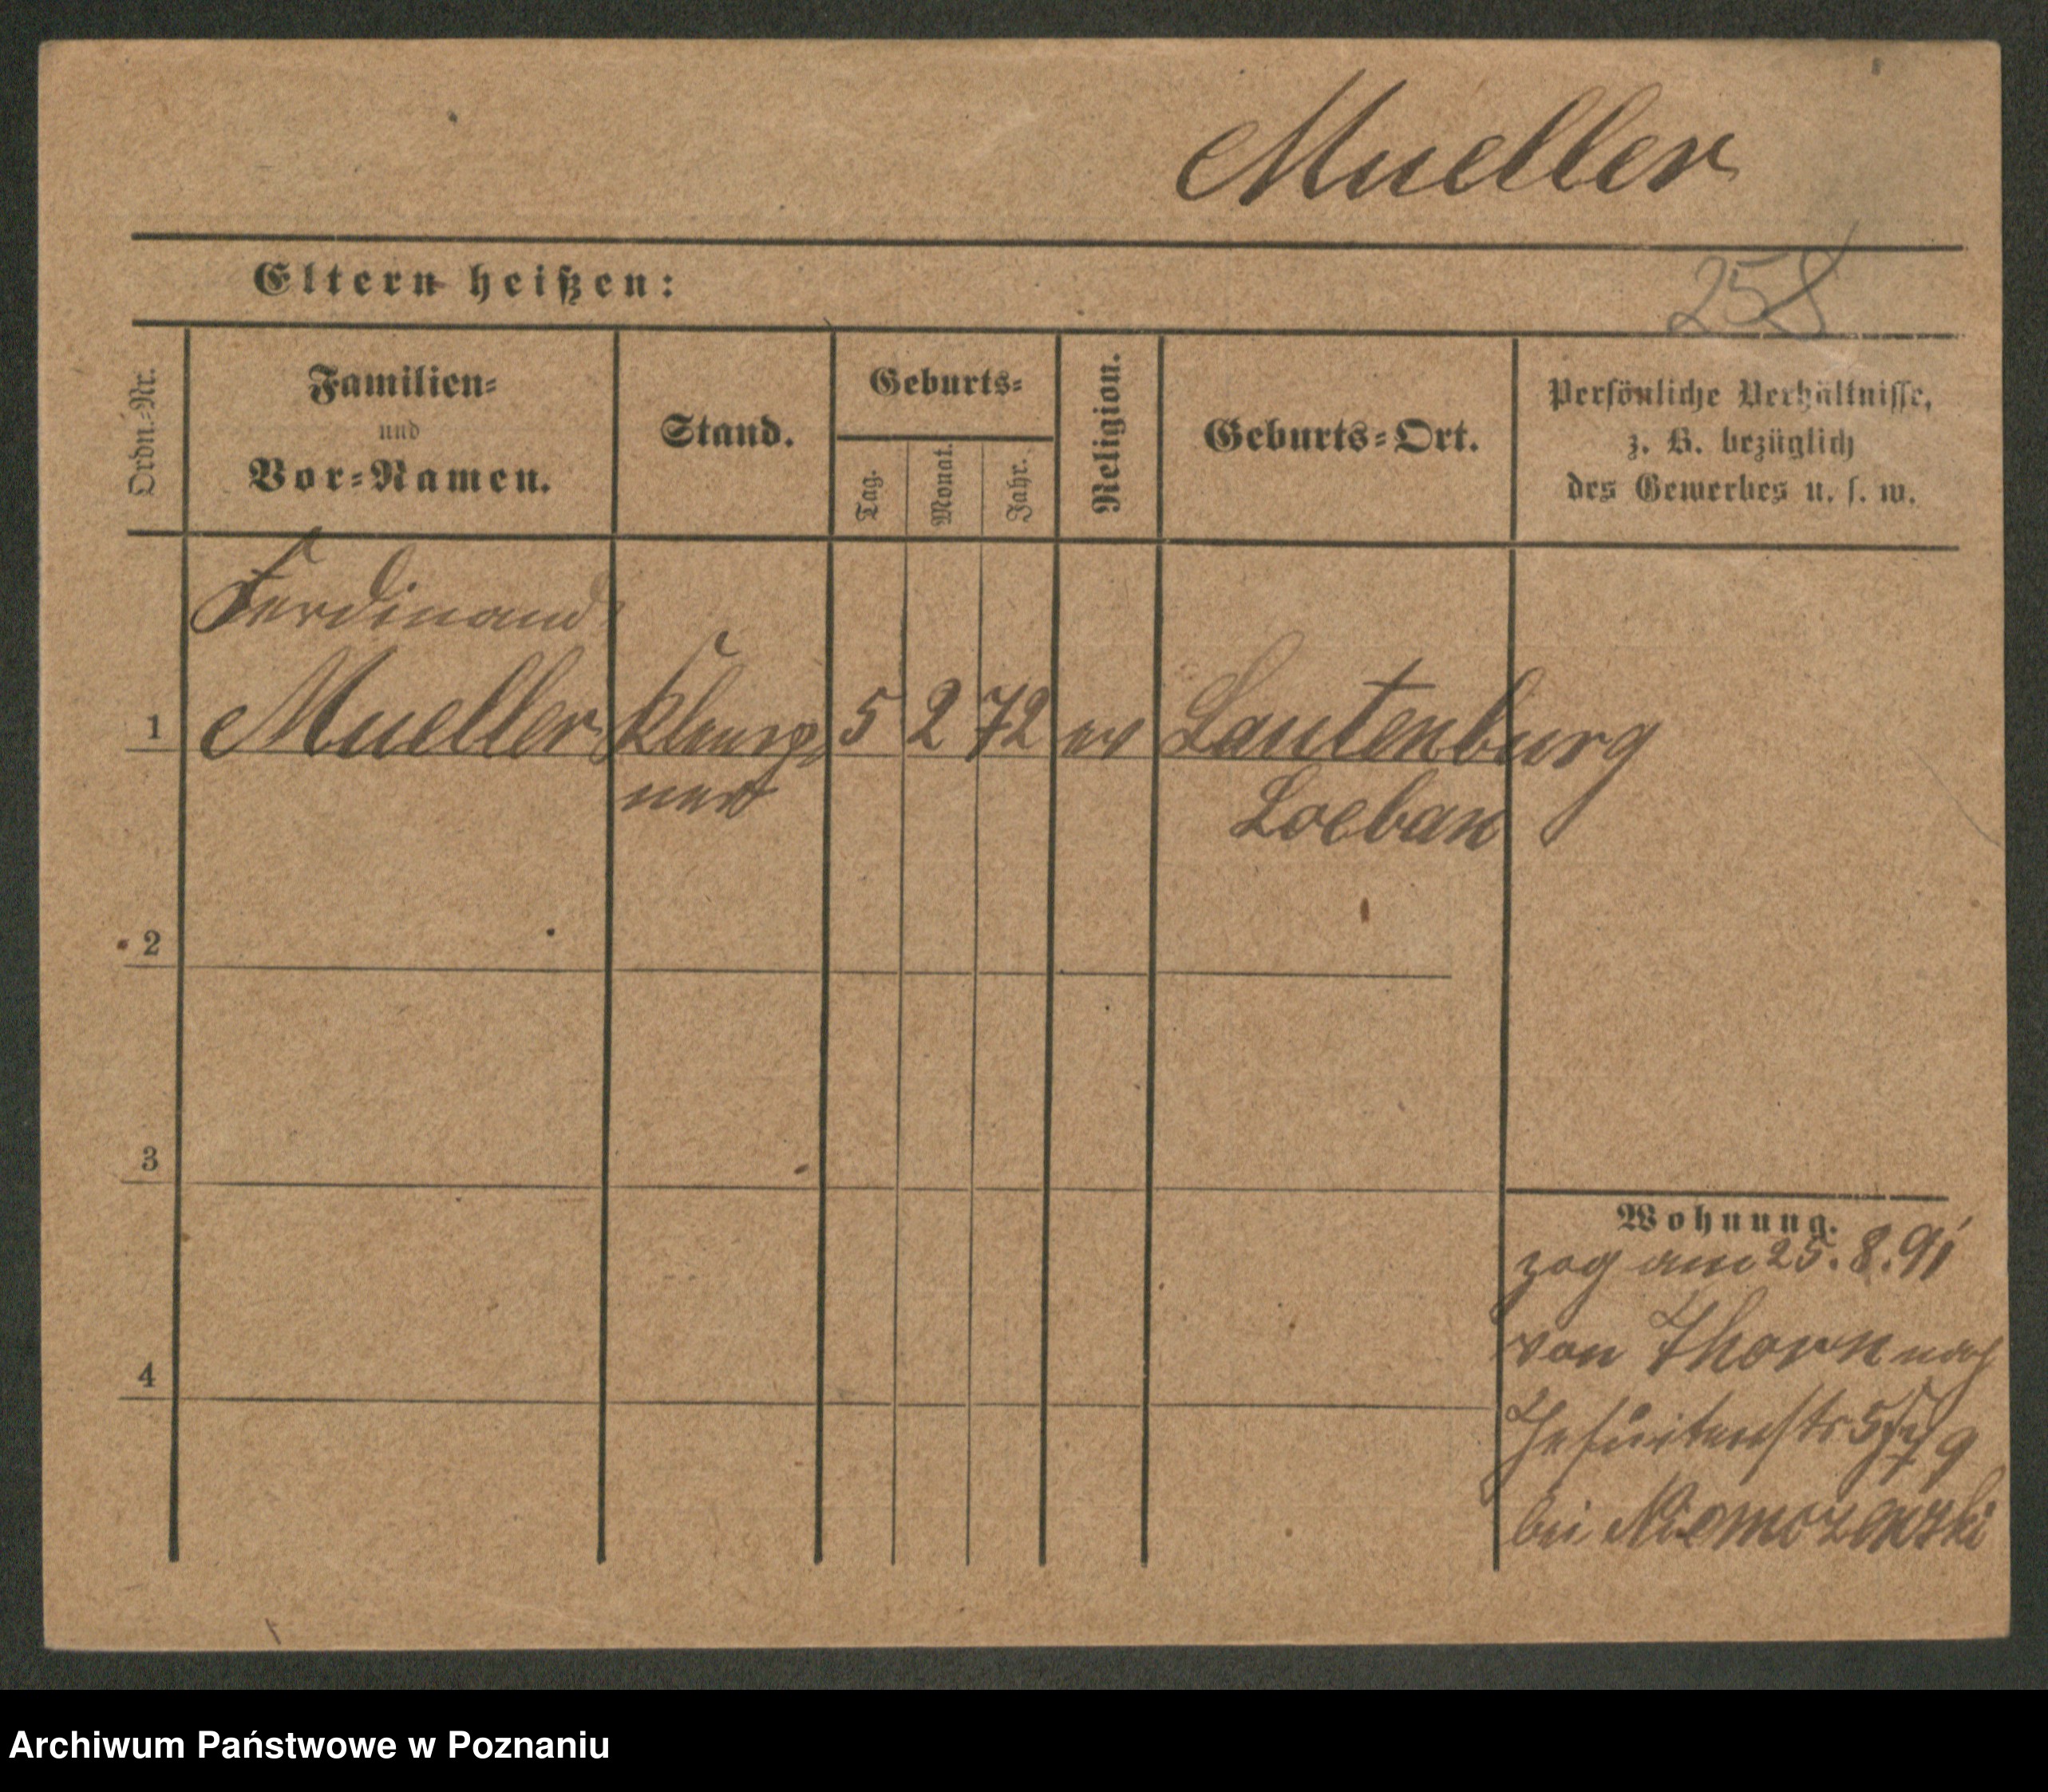 Mueller
Eltern heißen:
258
Ordn.-Nr.
Familien-
und
Vor-Namen.
Stand.
Geburts-
Tag.
Monat.
Jahr.
Religion.
Geburts-Ort.
Persönliche Verhältnisse,
z. B. bezüglich
des Gewerbes u. s. w.
Ferdinand
1 Mueller Klemp 5 2 72 ev Lautenburg
ner Loebau
2
3
Wohnung.
zog am 25. 8. 91
von Thorn nach
4
Jesuitenstr 5
bei
Archiwum Państwowe w Poznaniu